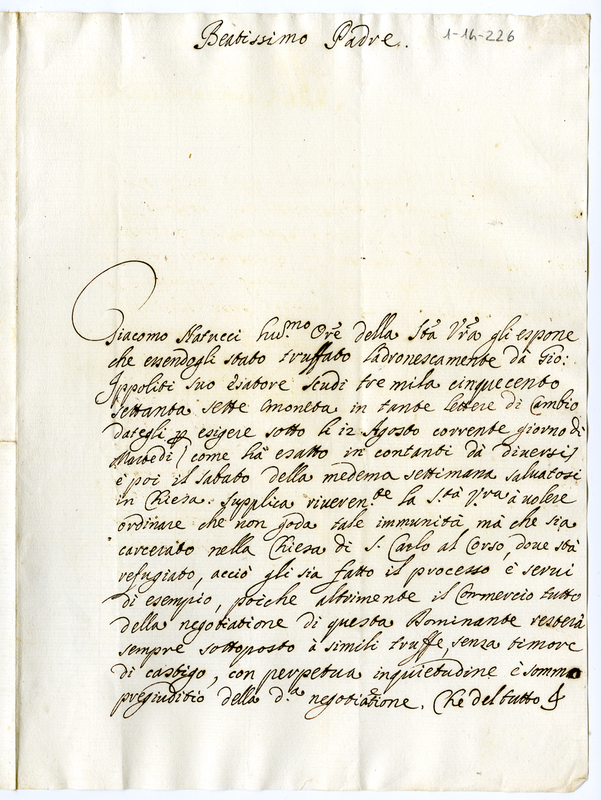 Beatissimo Padre.
1-14-226
Giacomo Natucci hu.mo Ore della Stà Vrà gli espone
che essendogli stato truffato ladronescamente dà Gio:
Ippoliti suo scudi tre mila cinquecento
settanta sette moneta in tante lettere di Cambio
dategli p esigere sotto li 12 Agosto corrente giorno di
Martedi (come hà esatto in contanti dà diversi)
è poi il sabato della medema settimana salvatosi
in Chiesa. Supplica riveren.te la Stà Vra à volere
ordinare che non goda tale immunità, mà che sia
carcerato nella Chiesa di S. Carlo al Corso, dove stà
refugiato, acciò gli sia fatto il processo è servi
di esempio, poiche altrimente il Commercio tutto
della negotiatione di questa Dominante resterà
sempre sottoposto à simili truffe, senza timore
di castigo, con perpetua inquietudine è sommo
pregiuditio della d.a negotiatione. Che del tutto &